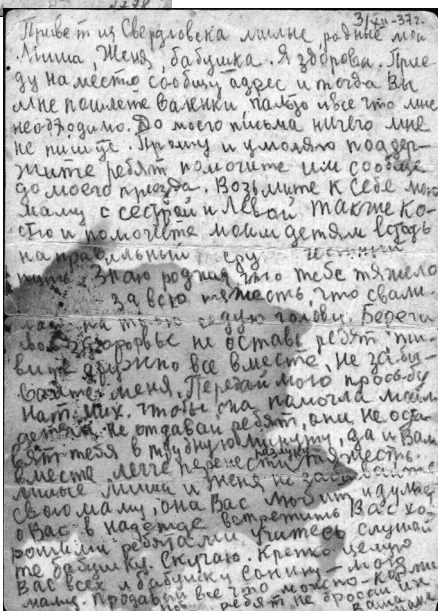 3/XII-37г.
Привет из Свердловска милые, родные мои
Миша, Женя, бабушка. Я здорова. Прие-
ду на место сообщу адрес и тогда Вы
мне пошлете валенки, пальто и все что мне
необходимо. До моего письма ничего мне
не пишите. Прошу и умоляю поддер-
жите ребят помогите им сообща
до моего приезда. Возьмите к себе мою
маму с сестрой и Левой также Ко-
стю и помогите моим детям встать
на правильный
путь. Знаю родная, что тебе тяжело
за всю тяжесть, что свали-
на твою седую голову. Береги
здоровье не оставь ребят жи-
вите дружно все вместе, не забы-
вайте меня. Передай мою просьбу
чтобы она помогла моим
детям. Не отдавай ребят, они не оста-
вят тебя в трудную минуту, да и Вам
вместе легче перенести разлуку тяжесть.
Милые Миша и Женя не забывайте
свою маму, она Вас любит и думает
о Вас в надежде встретить Вас хо-
рошими ребятами учитесь слушай
те бабушку. Скучаю. Крепко целую
Вас всех и бабушку мою
маму. Продавай все что можно - корми
ребят не бросай их